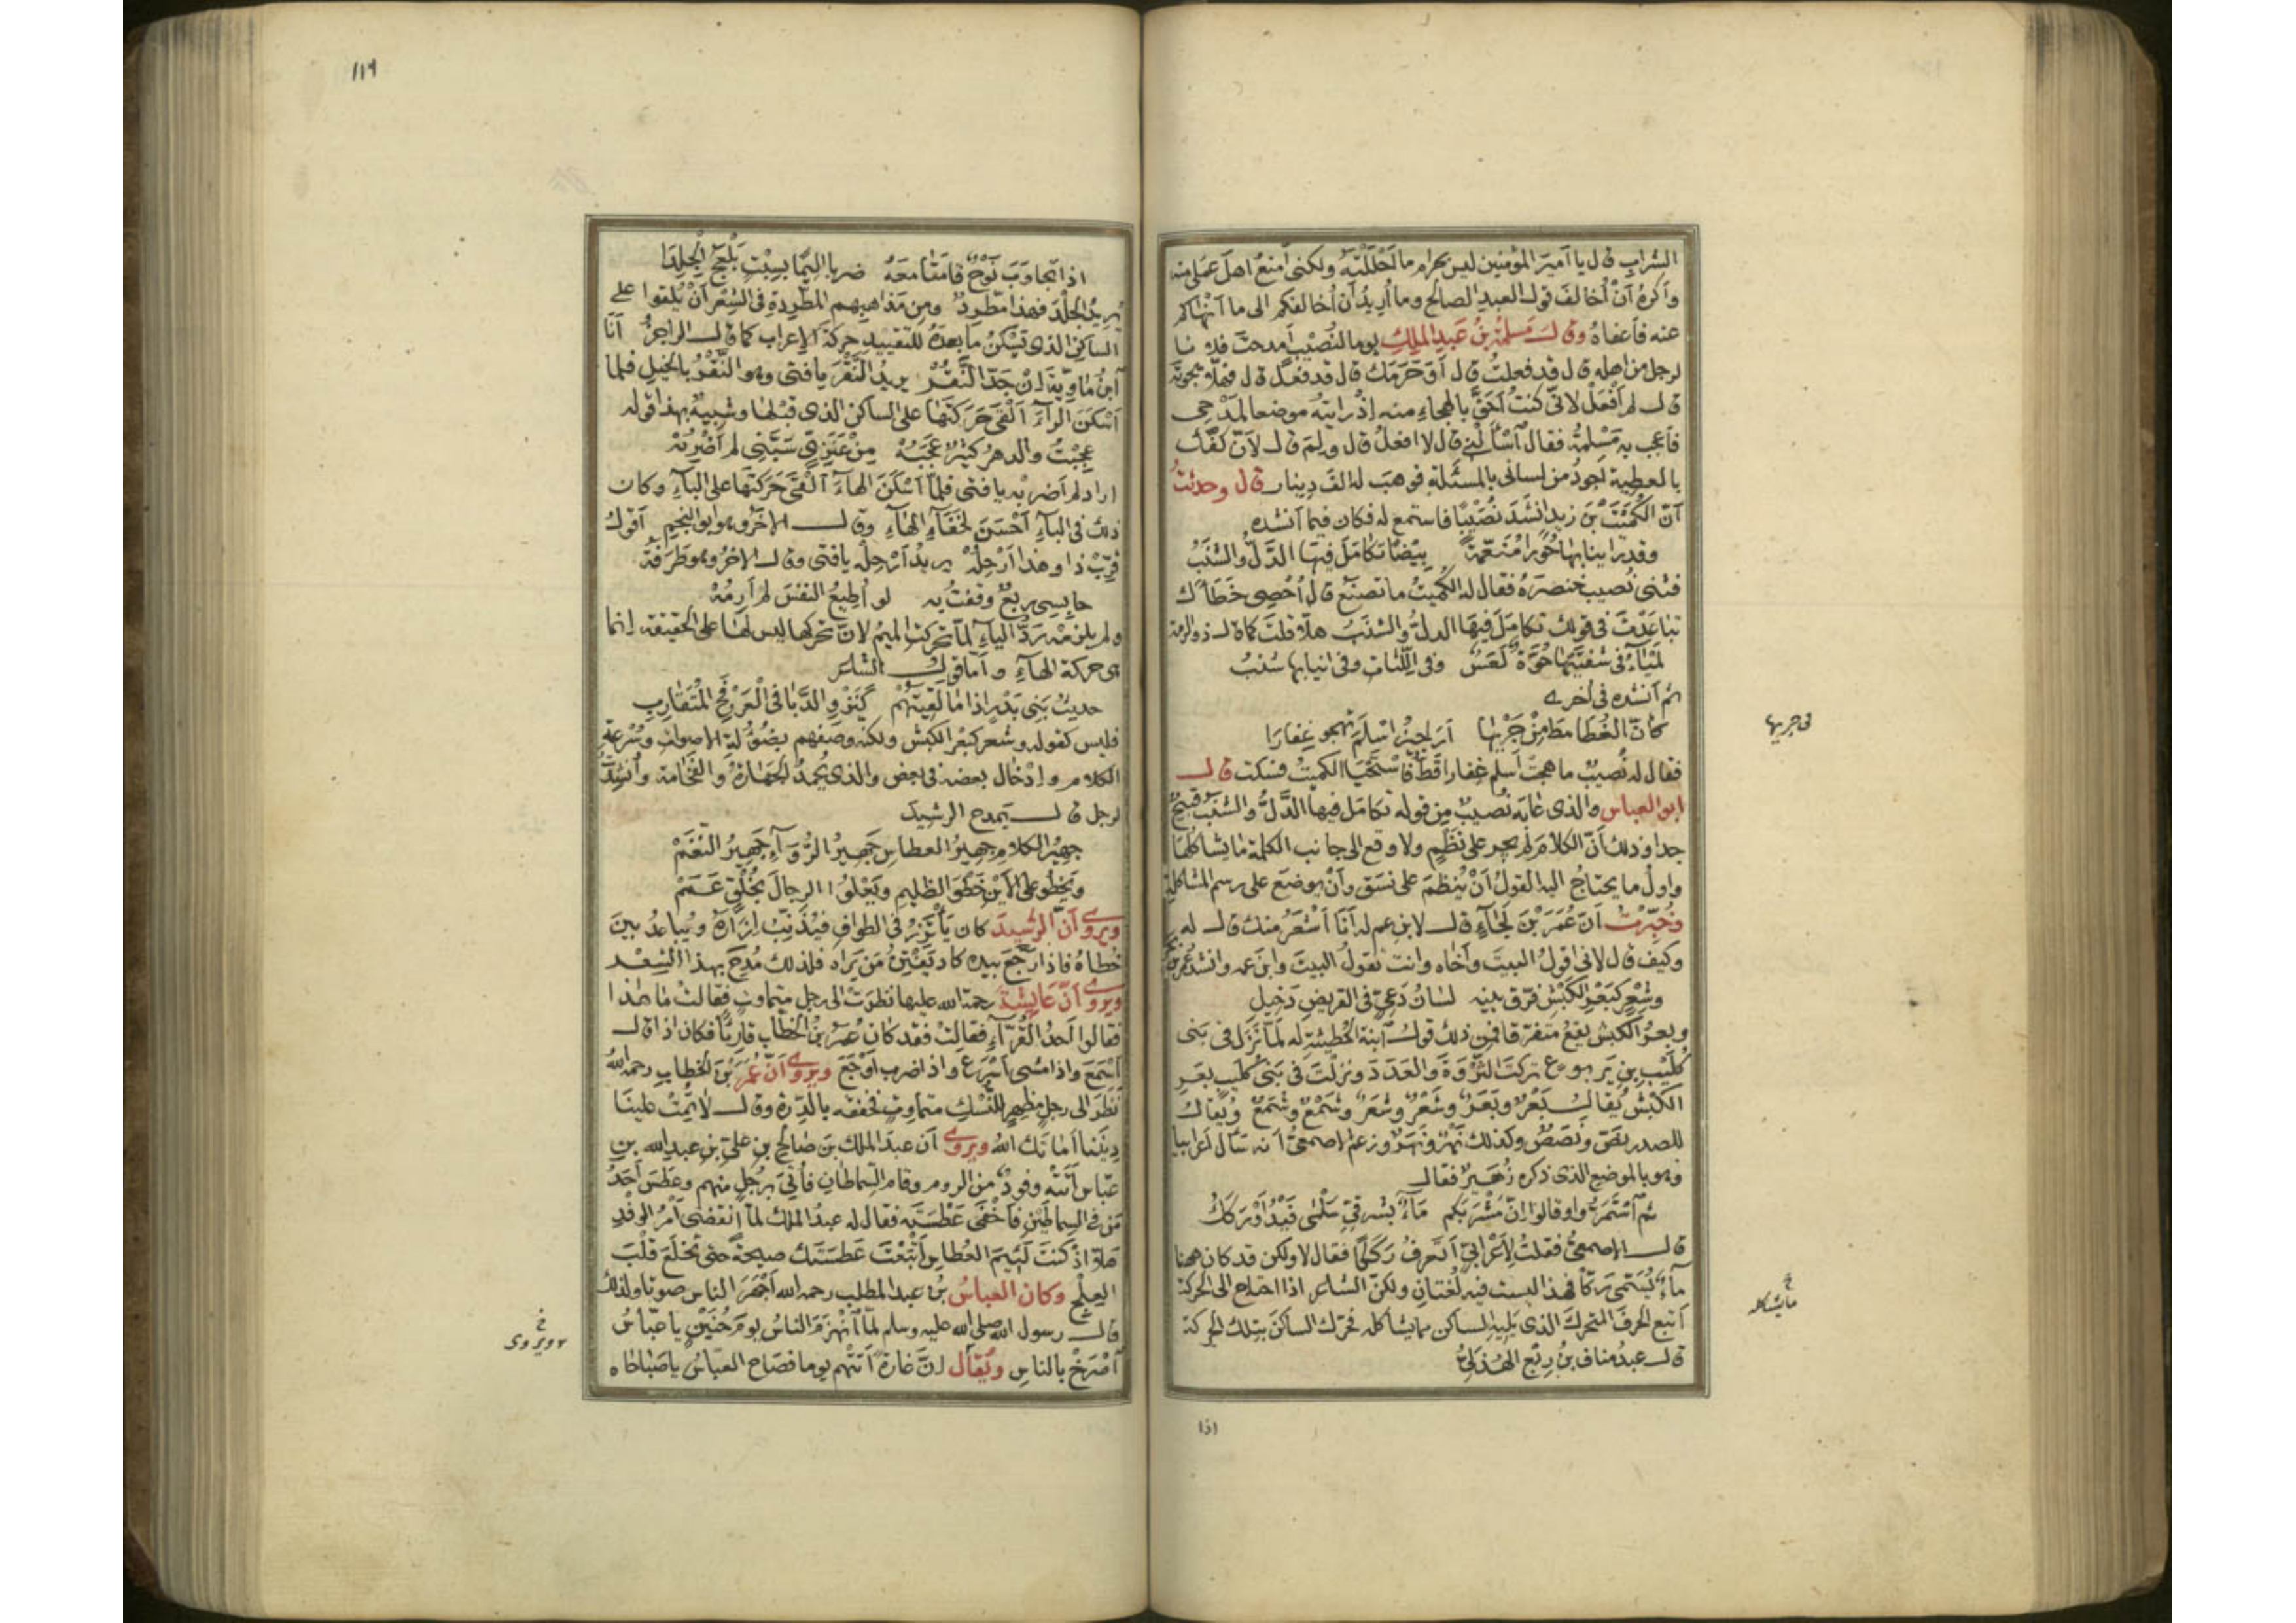 الشراب قال يا أمير المؤمنين ليس بحرام ما أحللته ولكني أمنع أهل عملي منه
وأكره أن أخالف قول العبد الصالح وما أريد أن أخالفكم الى ما أنهاكم
عنه فأعفاه وقال مسلمة بن عبد الملك يوما لنصيب أمدحت فلانا
لرجل من اهله قال قد فعلت قال أوحرمك قال قد فعل قال فهلا هجوته
قال لم أفعل لاني كنت أحق بالهجاء منه إذ رايته موضعا لمدحي
فأعجب به مسلمة فقال أسألني قال لا افعل قال ولم قال لأن كفك
بالعطية اجود من لساني بالمسئلة فوهب له الف دينار قال وحدثت
أن الكميت بن زيد انشد نصيبا فاستمع له فكان فيما أنشده
وقد راينا بها حورا منعمة بيضا تكامل فيها الدل والشنب
فثنى نصيب خنصره فقال له الكميت ما تصنع قال أحصى خطأك
تباعدت في قولك تكامل فيها الدل والشنب هلا قلت كما قال ذو الرمة
لمياء في شفتيها حوة لعس وفي اللثات وفي انيابها شنب
ثم أنشده في أخرى
كأن الغطامط من جريها أراجيز اسلم تهجو غفارا
في جريها
فقال له نصيب ما هجت أسلم غفارا قط فاستحيا الكميت فسكت قال
ابو العباس والذي عابه نصيب من قوله تكامل فيها الدل والشنب قبيح
جدا وذلك أن الكلام لم يجر على نظم ولا وقع الى جانب الكلمة ما يشاكلها
واول ما يحتاج اليه القول أن ينظم على نسق وأن يوضع على رسم المشاكلة
وخبرت أن عمر بن لجاء قال لابن عم له أنا أشعر منك قال له
وكيف قال لاني اقول البيت وأخاه وانت تقول البيت وابن عمه وانشد عمر بن بحر
وشعر كبعر الكبش فرق بينه لسان دعي في القريض دخيل
وبعر الكبش يقع متفرقا فمن ذلك قول ابنة الحطيئة له لما نزل في بني
كليب بن يربوع تركت الثروة والعدد ونزلت في بني كليب بعر
الكبش يقال بعر وبعر وشعر وشعر وشمع وشمع ويقال
للصدر قص وقصص وكذلك نهر ونهر وزعم الاصمعي أنه سأل اعرابيا
وهو بالموضع الذي ذكره زهير فقال
ثم أستمروا وقالوا ان مشربكم ماء بشرقي سلمى فيد أو ركك
قال الاصمعي فقلت لاعرابي أتعرف رككا فقال لا ولكن قد كان ههنا
ماء يسمى ركا فهذا البيت فيه لغتان ولكن الشاعر اذا احتاج الى الحركة
أتبع الحرف المتحرك الذي يليه الساكن بما يشاكله فحرك الساكن بتلك الحركة
ما يشاكله
قال عبد مناف بن ربع الهذلي
اذا
119
اذا تجاوب نوح قامتا معه ضربا اليما بسبت يلعج الجلدا
يريد الجلد فهذا مطرد ومن مذاهبهم المطردة في الشعر أن يلقوا على
الساكن الذي تسكن ما بعده للتقييد حركة الإعراب كما قال الراجز أنا
ابن ماوية إن جد النقر يريد النقر يا فتى وهو النقر بالخيل فلما
أسكن الراء ألقى حركتها على الساكن الذي قبلها وشبيه بهذا قوله
عجبت والدهر كثير عجبه من عنزي سبني لم أضربه
اراد لم اضربه يا فتى فلما أسكن الهاء ألقى حركتها على الباء وكان
ذلك في الباء أحسن لخفاء الهاء وقال الاخر وهو ابو النجم أقول
قرب ذا وهذا أزحله يريد أزحله يا فتى وقال الاخر وهو طرفة
حابسي ربع وقفت به لو أطيع النفس لم أرمه
ولم يلزمه رد الياء لما تحركت الميم لان تحركها ليس لها على الحقيقة انما
هي حركة الهاء وأما قول الشاعر
حديث بني بدر إذا ما لقيتهم كنزو الدبا في العرفج المتقارب
فليس كقوله وشعر كبعر الكبش ولكنه وصفهم بضؤولة الاصوات وسرعة
الكلام وإدخال بعضه في بعض والذي يحمد الجهارة والفخامة وأنشدت
لرجل قال يمدح الرشيد
جهير الكلام جهير العطاس جهير الرواء جهير النغم
ويخطو على الأين خطو الظليم ويعلوا الرجال بخلق عمم
ويروى أن الرشيد كان يأتزر في الطواف فيذنب إزاره ويباعد بين
خطاه فاذا رجع بيده كاد يفتن من يراه فلذلك مدح بهذا الشعر
ويروى أن عايشة رحمة الله عليها نظرت الى رجل متماوت فقالت ما هذا
فقالوا أحد القراء فقالت فقد كان عمر بن الخطاب قاريا فكان اذا قال
أسمع واذا مشى أسرع واذا ضرب أوجع ويروى أن عمر بن الخطاب رحمه الله
نظر الى رجل مظهر للنسك متماوت فخفقه بالدرة وقال لا تمت علينا
ديننا أماتك الله ويروى أن عبد الملك بن صالح بن علي بن عبد الله بن
عباس أتته وفود من الروم وقام السماطان فأتي برجل منهم وعطس أحد
من في السماطين فأخفى عطسته فقال له عبد الملك لما انقضى أمر الوفد
هلا اذ كنت لئيم العطاس أتبعت عطستك صيحة حتى تخلع قلب
العلج وكان العباس بن عبد المطلب رحمه الله أجهر الناس صوتا ولذلك
قال رسول الله صلى الله عليه وسلم لما أنهزم الناس يوم حنين يا عباس
ويروى
أصرخ بالناس ويقال إن غارة أتتهم يوما فصاح العباس يا صباحاه